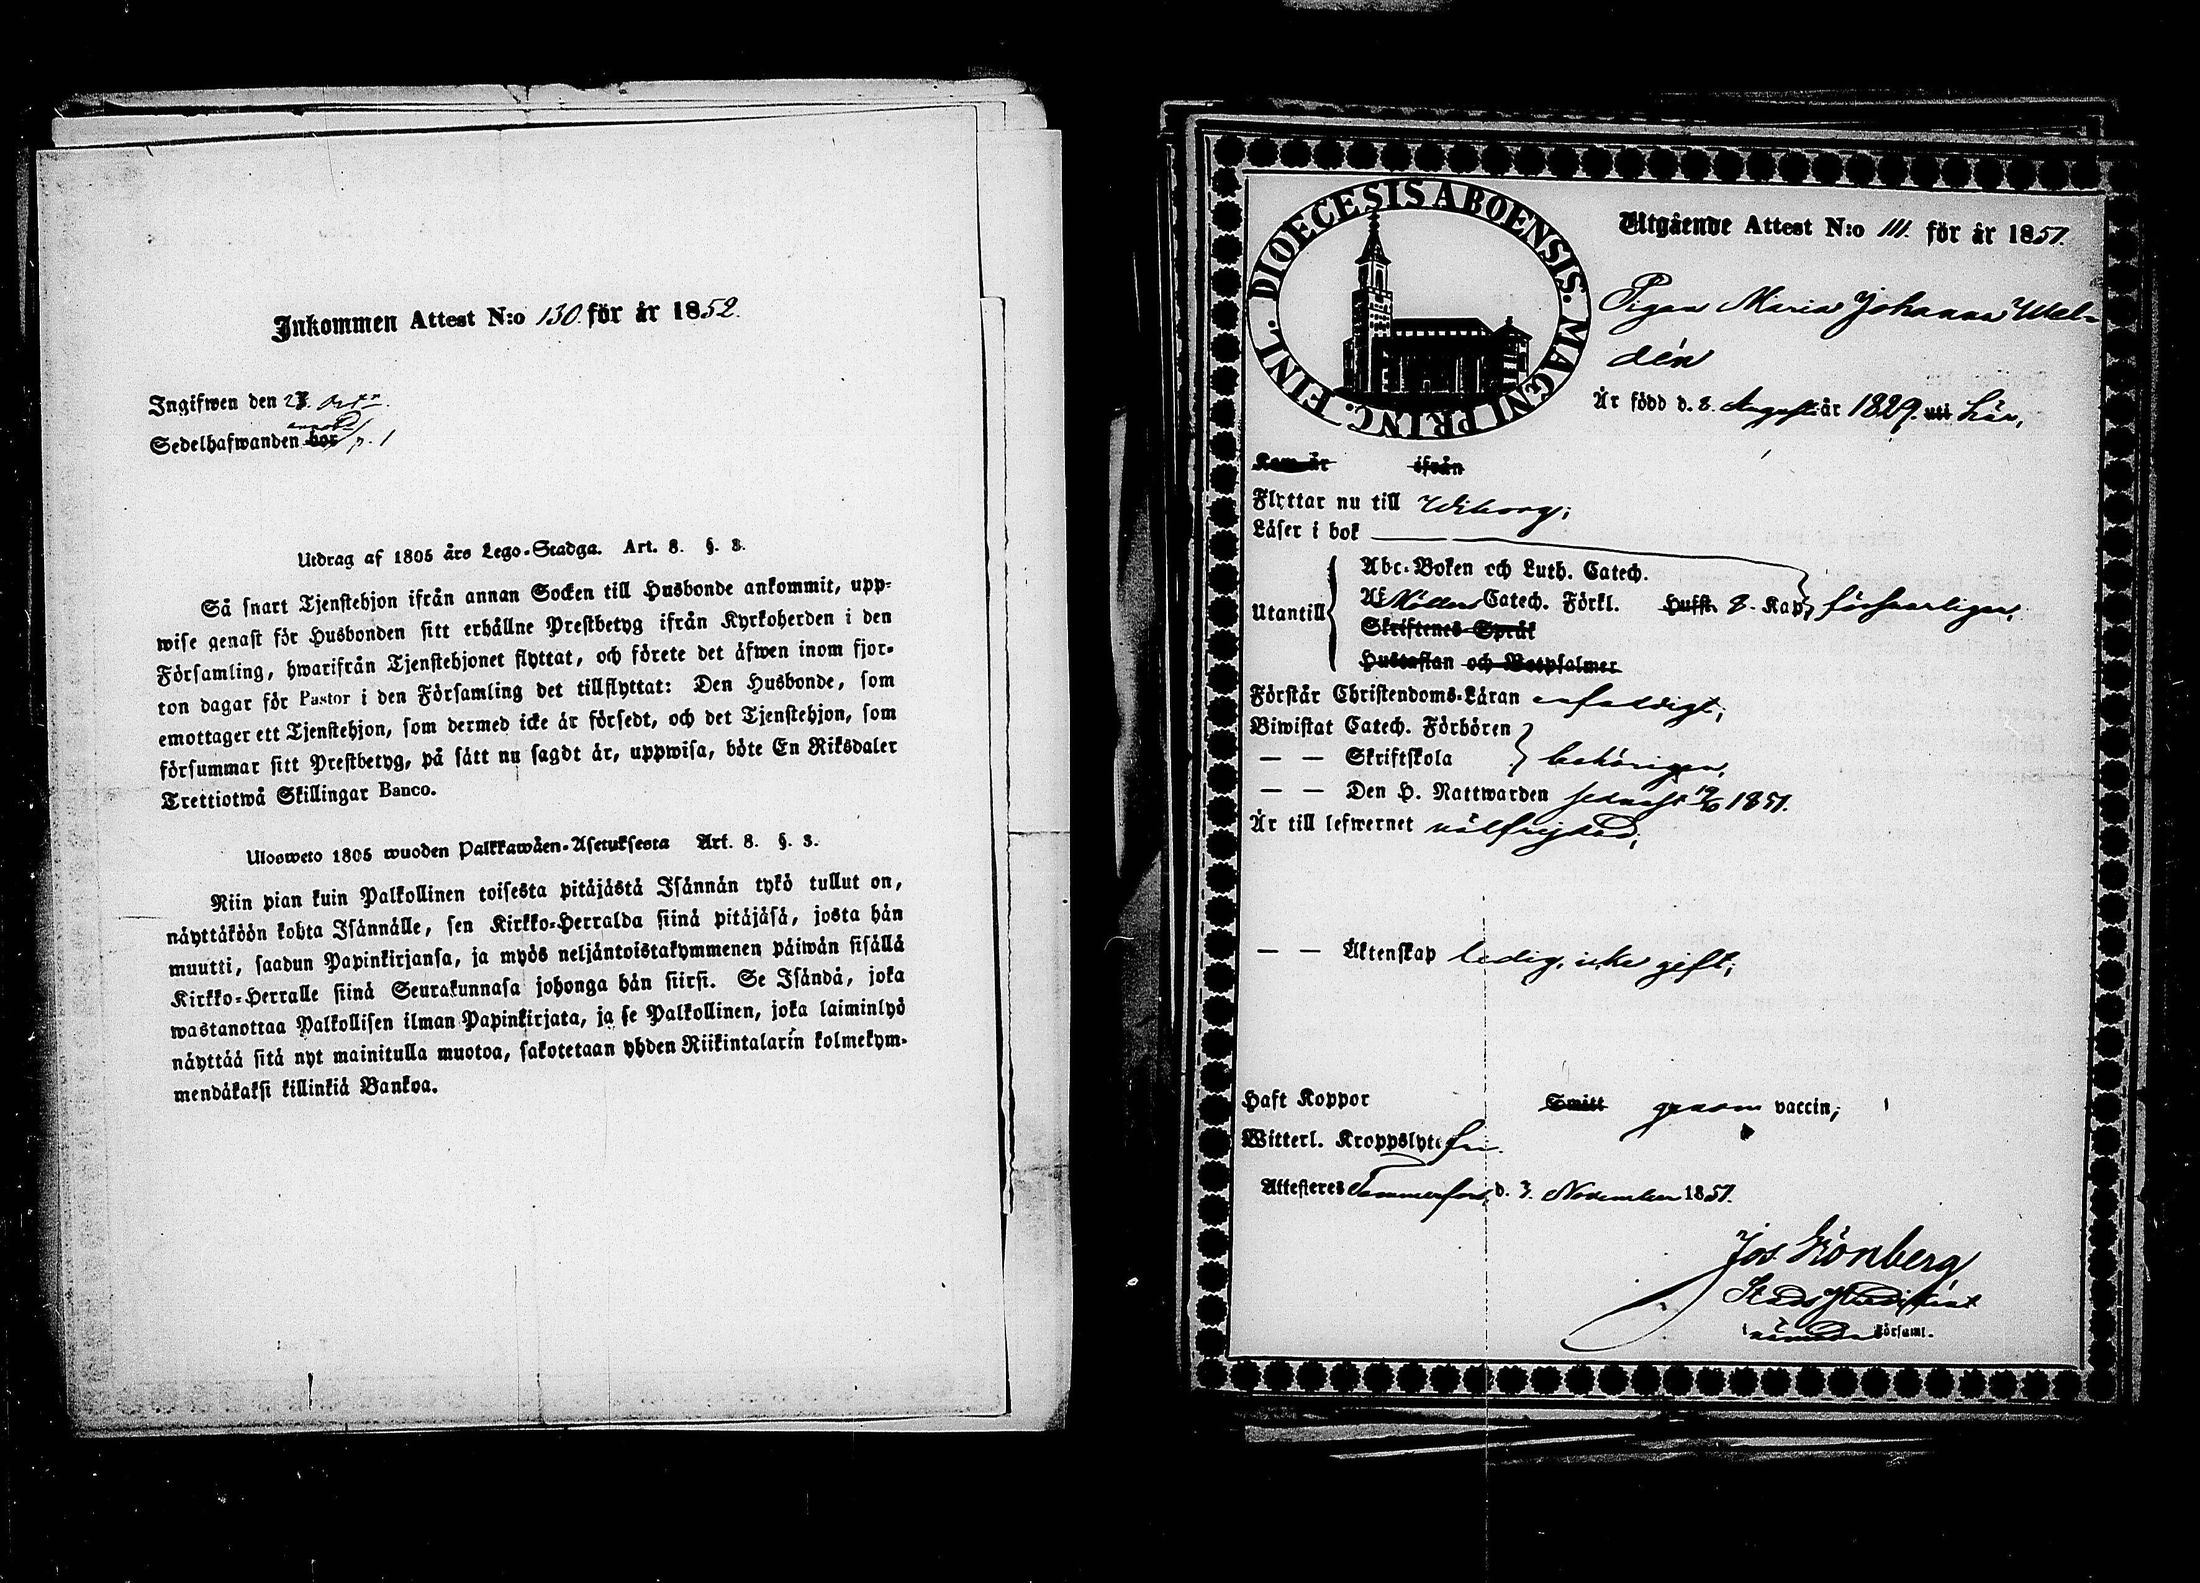 Inkommen Attest N:o 130. för år 1852.
Ingifwen den 23. Octr.
Sedelhafwanden bor p. 1
Utdrag af 1805 års Lego-Stadga. Art. 8. §. 3.
Så snart Tjenstehjon ifrån annan Socken till Husbonde ankommit, upp-
wise genast för Husbonden sitt erhållne Prestbetyg ifrån Kyrkoherden i den
Församling, hwarifrån Tjenstehjonet flyttat, och förete det äfwen inom fjor-
ton dagar för Pastor i den Församling det tillflyttat: Den Husbonde, som
emottager ett Tjenstehjon, som dermed icke är försedt, och det Tjenstehjon, som
försummar sitt Prestbetyg, på sätt nu sagdt är, uppwisa, böte En Riksdaler
Trettiotwå Skillingar Banco.
Ulosweto 1805 wuoden Palkkawäen-Asetuksesta Art. 8. §. 3.
Niin pian kuin Palkollinen toisesta pitäjästä Isännän tykö tullut on,
näyttäköön kohta Isännälle, sen Kirkko-Herralda siinä pitäjäsä, josta hän
muutti, saadun Papinkirjansa, ja myös neljäntoistakymmenen päiwän sisällä
Kirkko-Herralle siinä Seurakunnasa johonga hän siirsi. Se Isändä, joka
wastanottaa Palkollisen ilman Papinkirjata, ja se Palkollinen, joka laiminlyö
näyttää sitä nyt mainitulla muotoa, sakotetaan yhden Riikintalarin kolmekym-
mendäkaksi killinkiä Bankoa.
DIOECESIS ABOENSIS. MAGNI PRINC. FINL.
Utgående Attest N:o 111. för år 1851.
Pigan Maria Johanna Wel-
dén
Är född d. 8. August år 1829. uti här,
Kom år ifrån
Flyttar nu till Wiborg;
Läser i bok
Abc-Boken och Luth. Catech.
Utantill Af Möllers Catech. Förkl. Hufst. 8. Kap. försvarligen,
Skriftenes Språk
Hustaflan och Botpsalmer
Förstår Christendoms-Läran enfaldigt;
Biwistat Catech. Förhören
— — Skriftskola behörigen,
— — Den H. Nattwarden sednast 19/10 1851.
Är till lefwernet välfrejdad;
— — Äktenskap ledig, icke gift;
Haft Koppor Smitt genom vaccin;
Witterl. Kroppslyte fri.
Attesteres Tammerfors, d. 3. November 1851.
Jos Grönberg
i nämnde Församl.